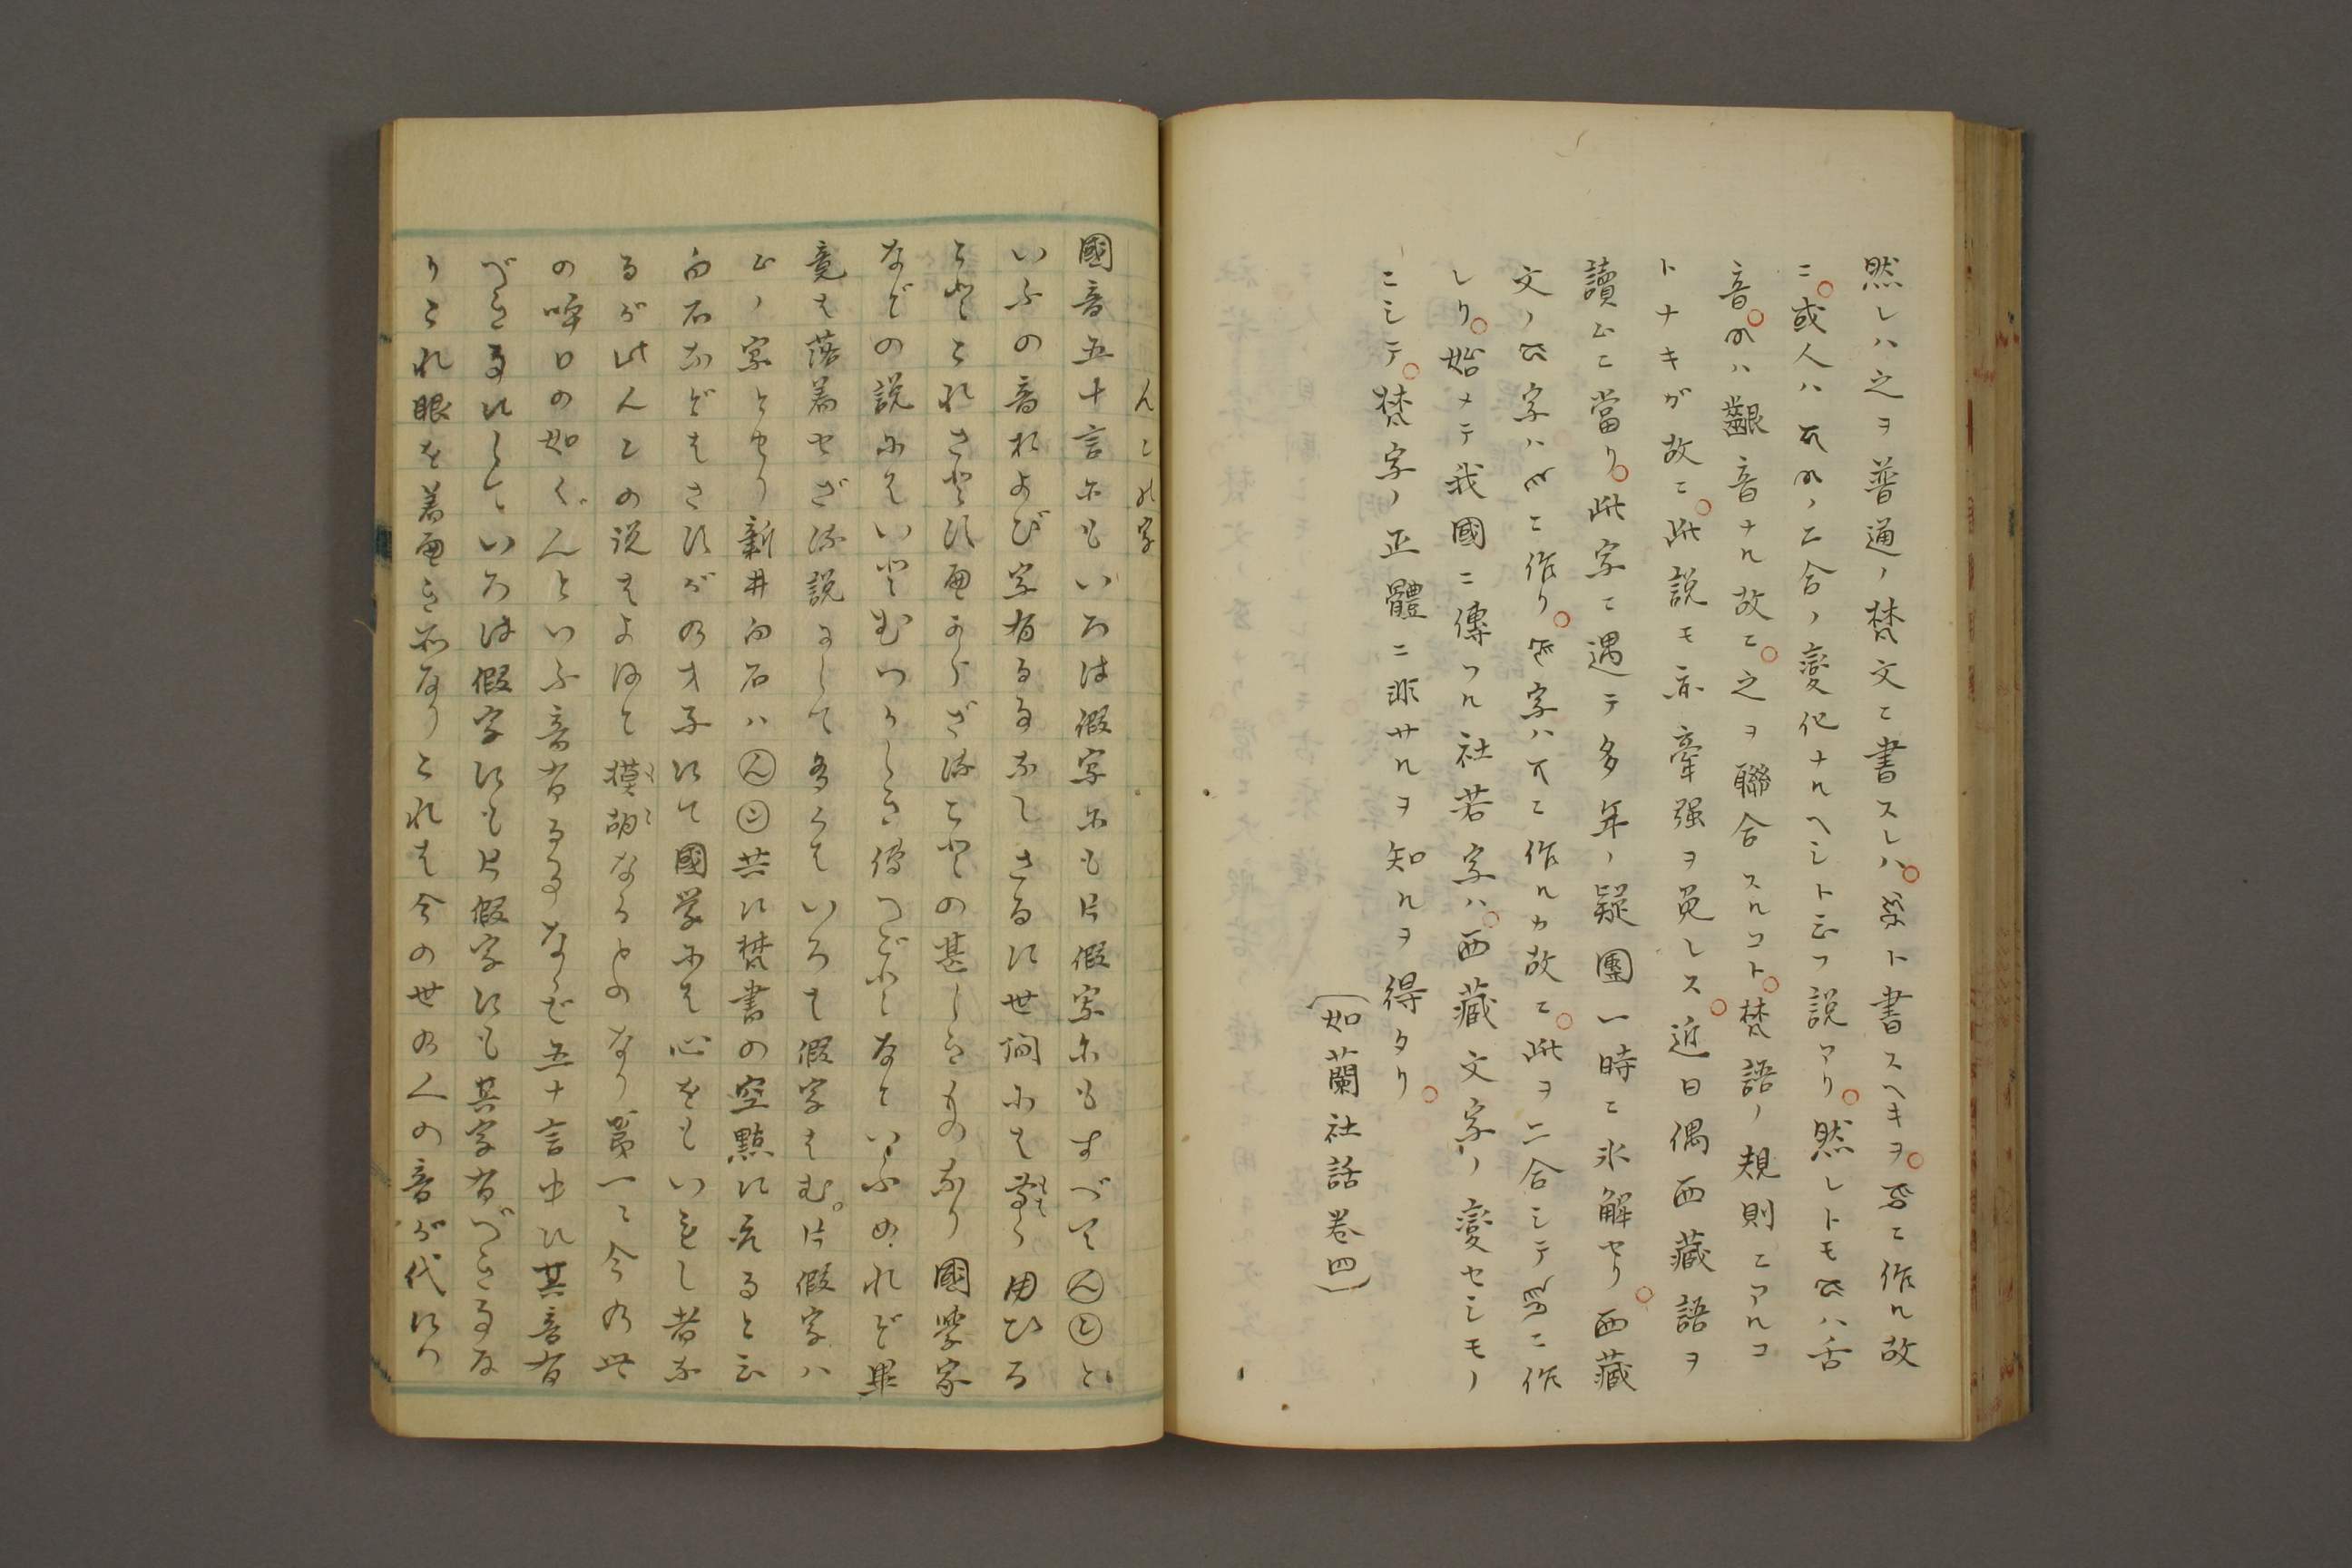 然レハ之ヲ普通ノ梵文ニ書スレハ。ト書スヘキヲ。ニ作ル故
ニ。或人ハノ二合ノ變化ナルヘシト云フ説アリ。然レトモハ舌
音。ハ齦音ナル故ニ。之ヲ聯合スルコト。梵語ノ規則ニアルコ
トナキガ故ニ。此説モ亦牽强ヲ免レス。近日偶西藏語ヲ
讀ムニ當リ。此字ニ遇テ多年ノ疑團一時ニ氷解セリ。西藏
文ノ字ハニ作リ。字ハニ作ルカ故ニ。此ヲ二合シテニ作
レリ。始メテ我國ニ傳フル社若字ハ。西藏文字ノ變セシモノ
ニシテ。梵字ノ正體ニ非サルヲ知ルヲ得タリ。
(如蘭社話卷四)
んンの字
國音五十言にもいろは假字にも片假字にもすべてんンと
いふの音および字有る事なしさるに世間にては專ら用ひる
ことこれさとすべからざることの甚しきものなり國學家
などの説にはいとむつかしき傳へごとしなどいふめれど畢
竟は落着せざる説にして多くはいろは假字はむ。片假字ハ
ムノ字とせり新井白石ハんン共に梵書の空點に究ると云
白石などはさすがの才子にて國學には心をもいれし者な
るが此んンの説はよほど摸胡なるものなり第一に今の世
の啌口の如くんといふ音有る事ならば五十言中に其音有
べき事にしていろは假字にも片假字にも其字有べき事な
りこれ眼を着べき所なりこれは今の世の人の音が代に